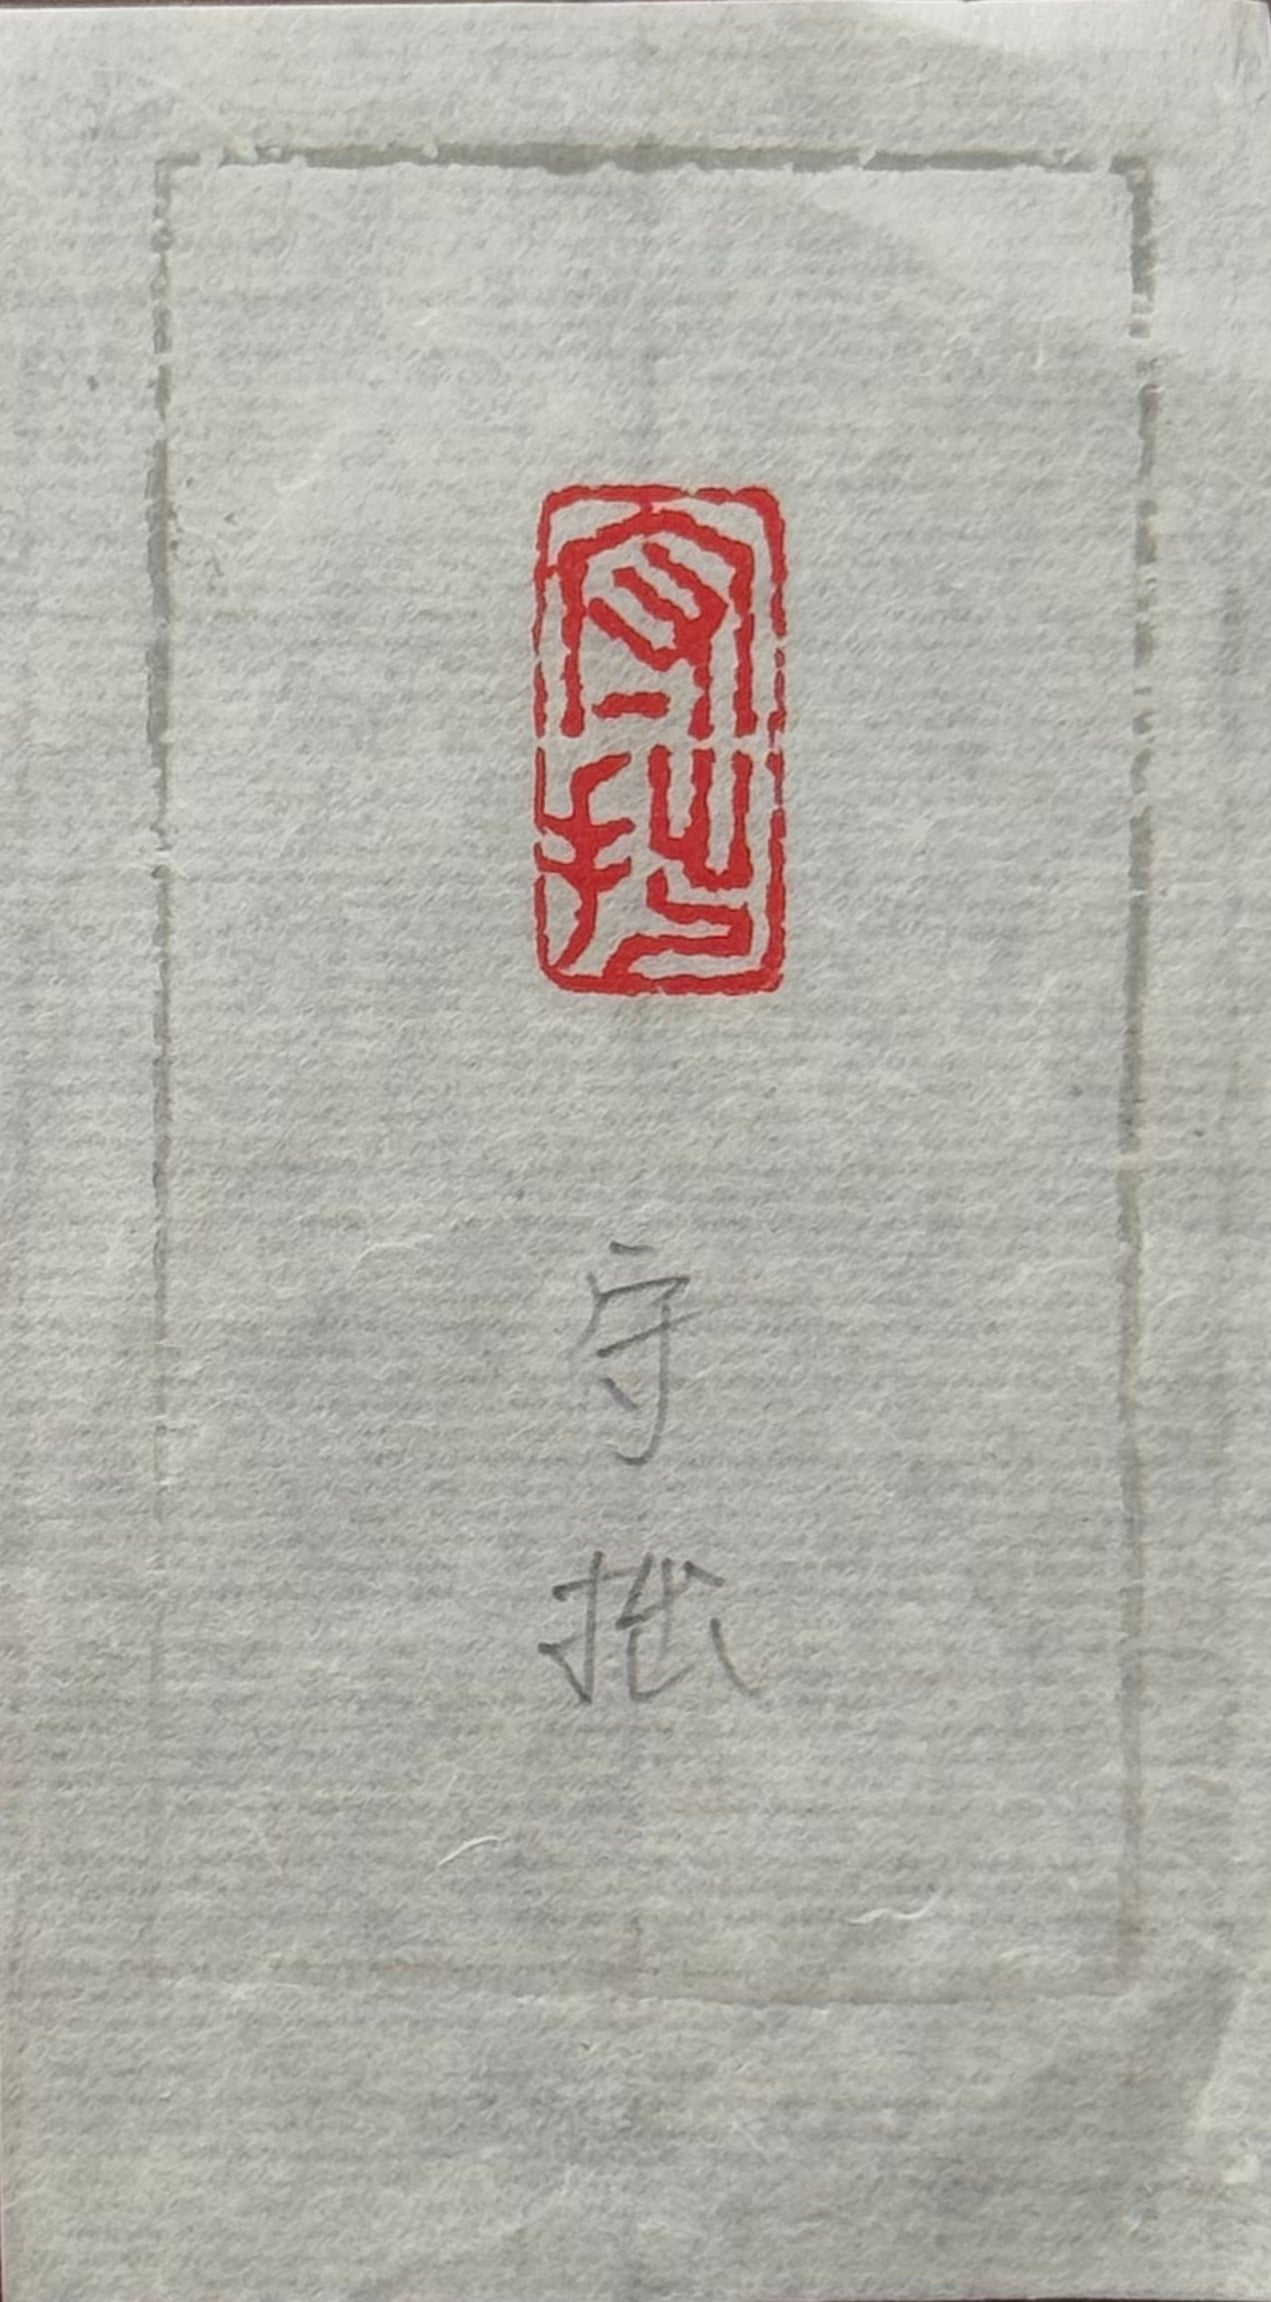 守拙
守
拙